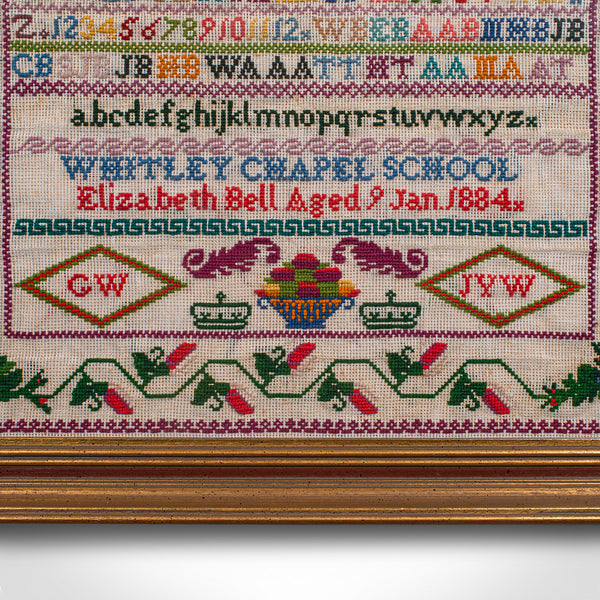 Z×123456789101112×WEEBAABMHBJB
CB JB JB HB WA AA TT HT AA MA AT
abcdefghijklmnopqrstuvwxyz×
WHITLEY CHAPEL SCHOOL
Elizabeth Bell Aged 9 Jan 1884×
GW JYW